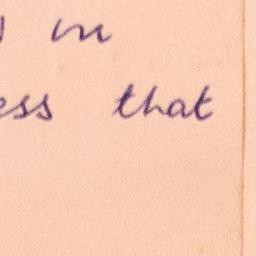 in
ess that